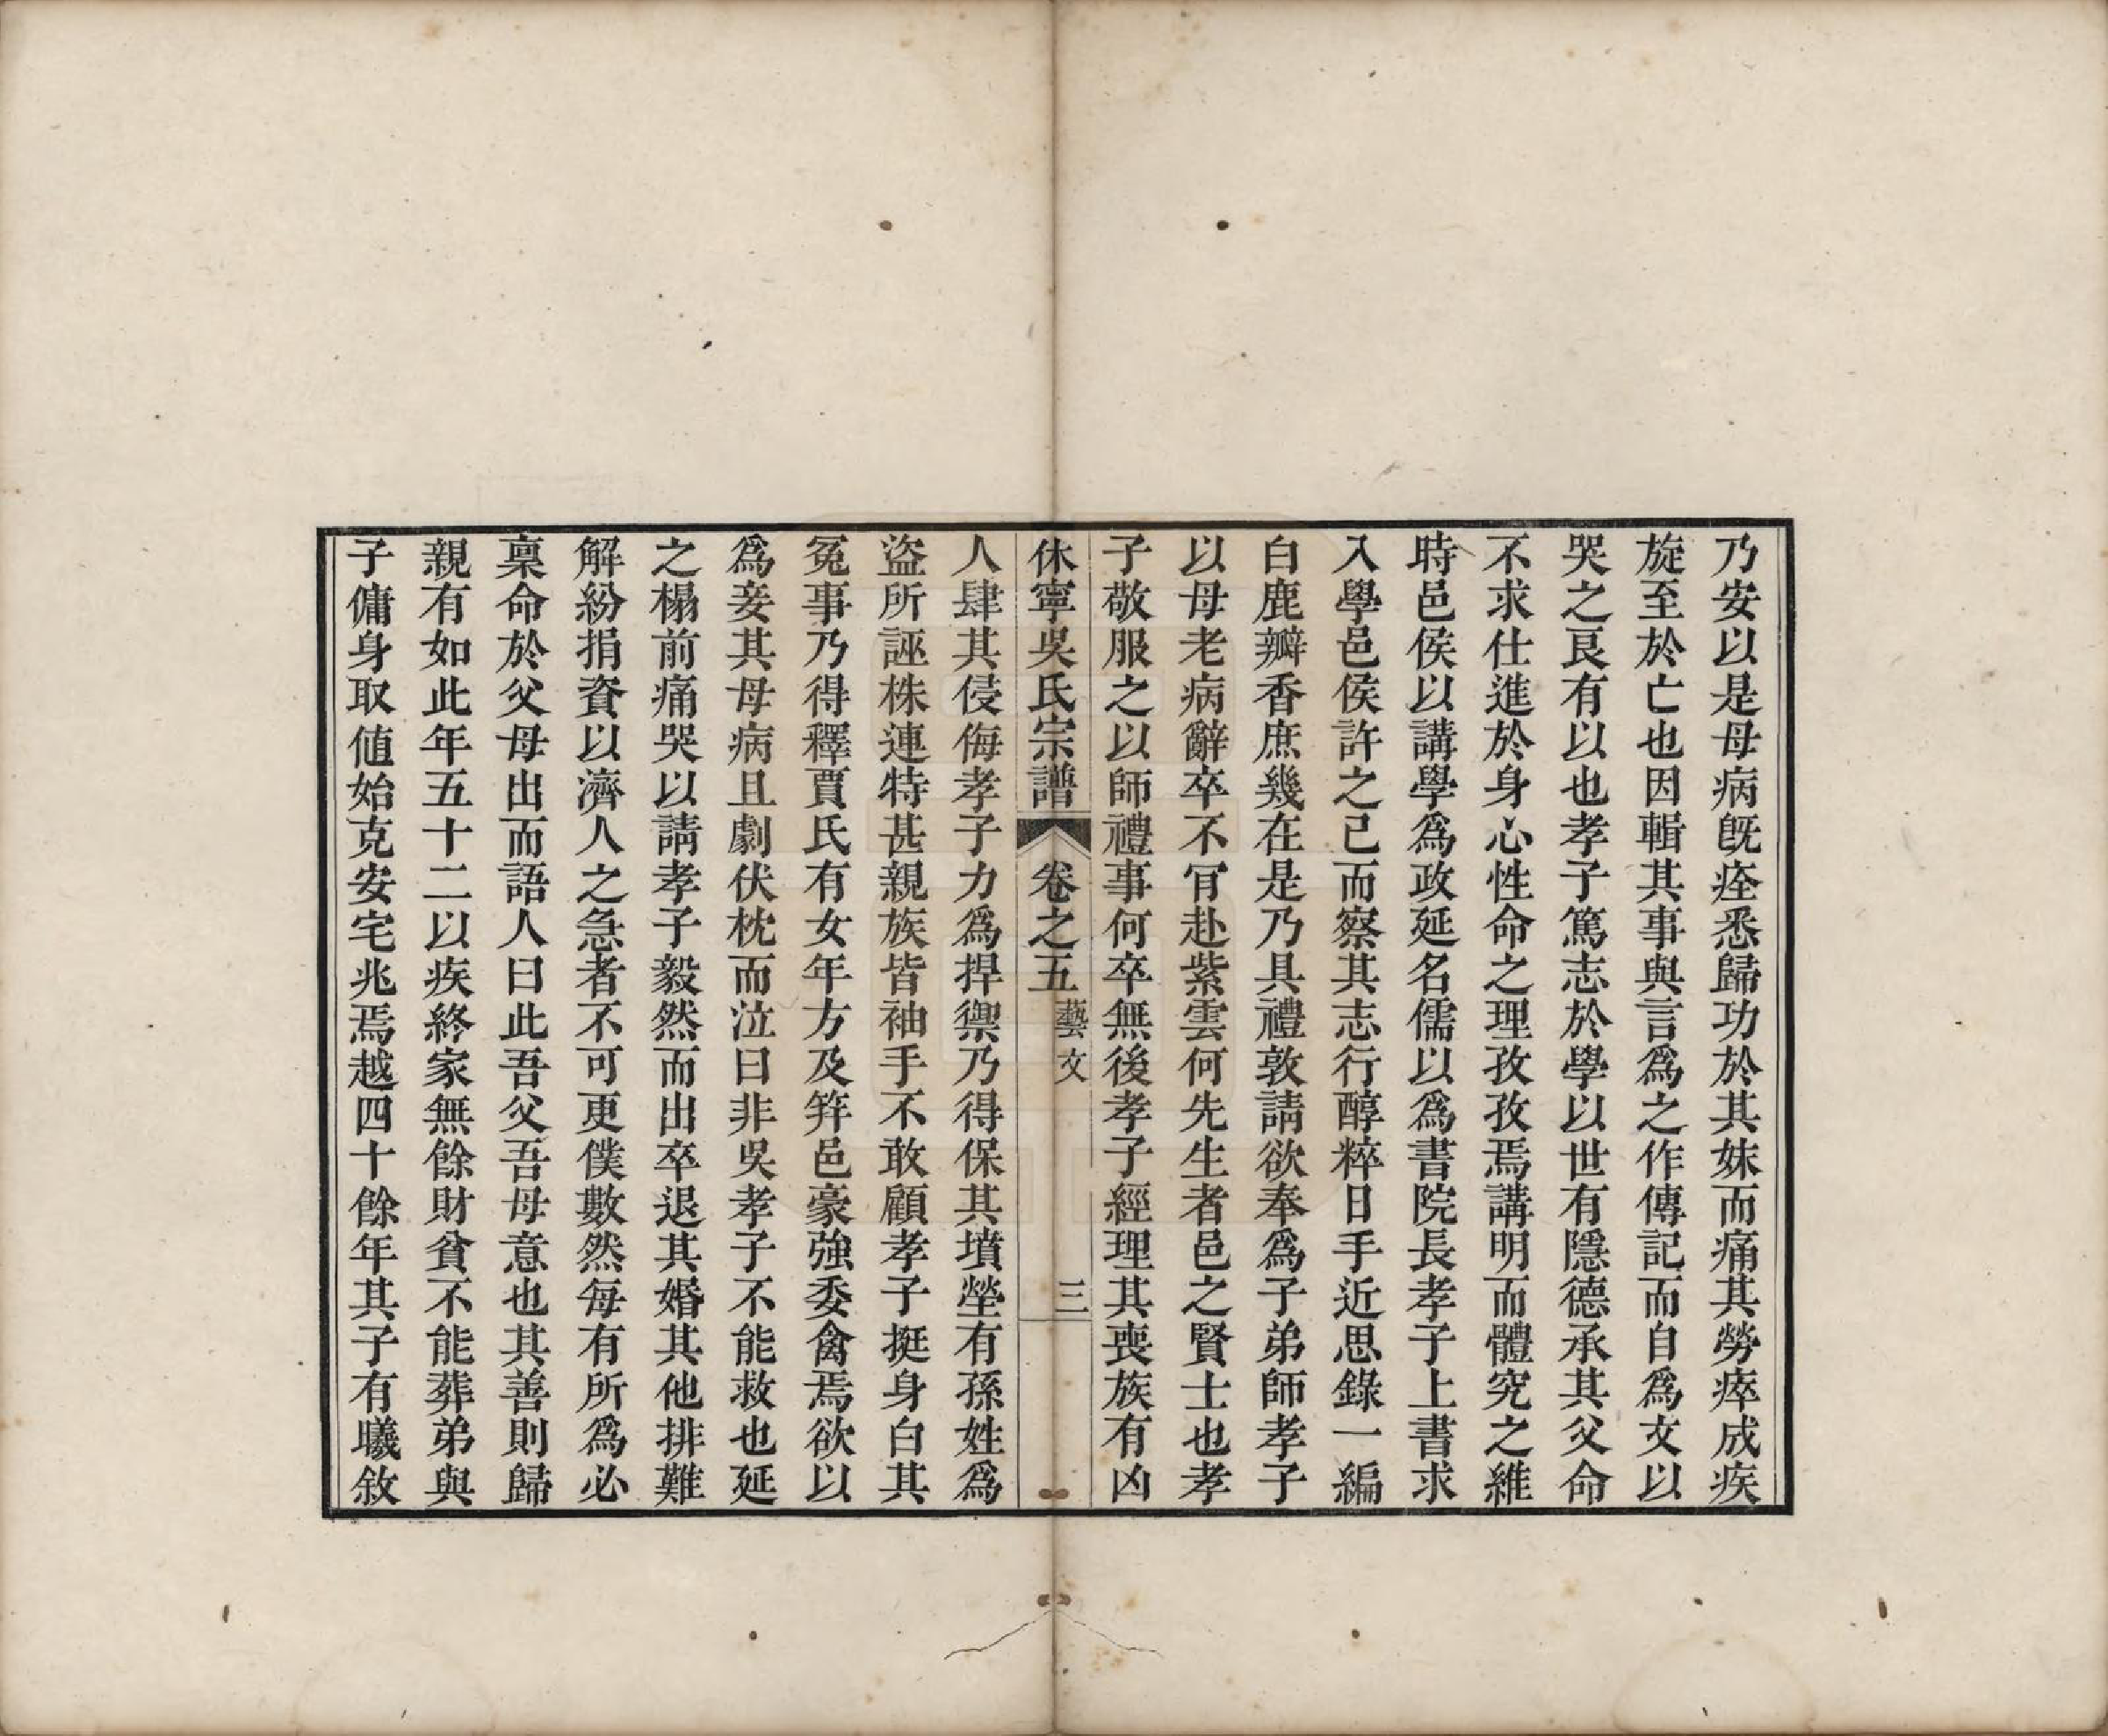 乃安以是母病旣痊悉歸功於其妹而痛其勞瘁成疾
旋至於亡也因輯其事與言爲之作傳記而自爲文以
哭之良有以也孝子篤志於學以世有隱德承其父命
不求仕進於身心性命之理孜孜焉講明而體究之維
時邑侯以講學爲政延名儒以爲書院長孝子上書求
入學邑侯許之已而察其志行醇粹日手近思錄一編
白鹿瓣香庶幾在是乃具禮敦請欲奉爲子弟師孝子
以母老病辭卒不肎赴紫雲何先生者邑之賢士也孝
子敬服之以師禮事何卒無後孝子經理其喪族有凶
休寧吳氏宗譜 卷之五 藝文 三
人肆其侵侮孝子力爲捍禦乃得保其墳塋有孫姓爲
盜所誣株連特甚親族皆袖手不敢顧孝子挺身白其
冤事乃得釋賈氏有女年方及笄邑豪強委禽焉欲以
爲妾其母病且劇伏枕而泣曰非吳孝子不能救也延
之榻前痛哭以請孝子毅然而出卒退其婚其他排難
解紛捐資以濟人之急者不可更僕數然每有所爲必
稟命於父母出而語人曰此吾父吾母意也其善則歸
親有如此年五十二以疾終家無餘財貧不能葬弟與
子傭身取値始克安宅兆焉越四十餘年其子有曦敘